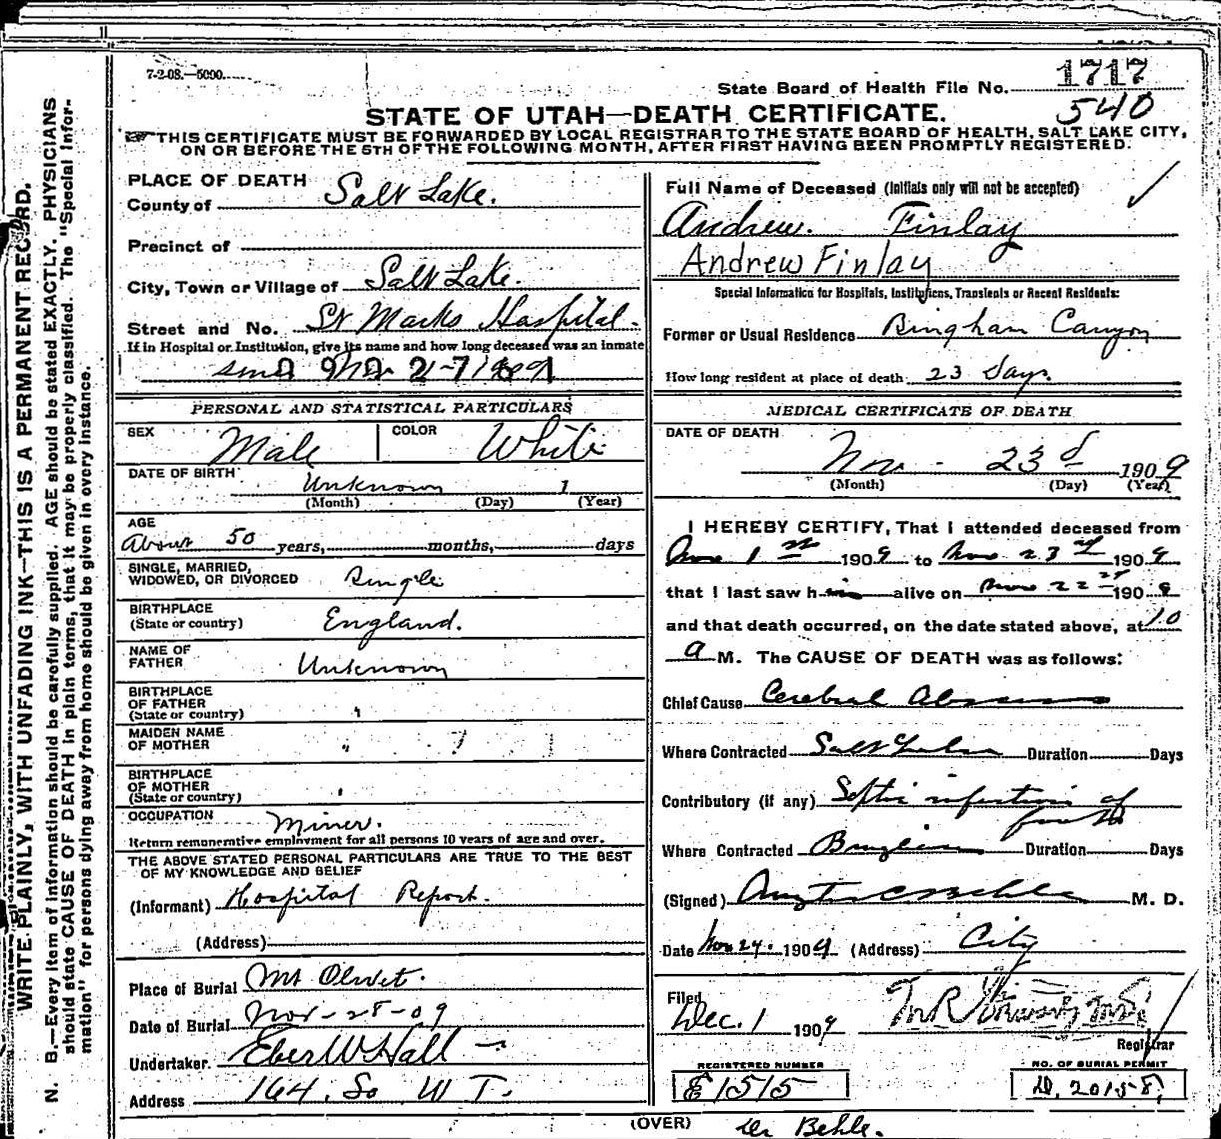 7-2-08.—5000.
State Board of Health File No. 1717
540
STATE OF UTAH—DEATH CERTIFICATE.
THIS CERTIFICATE MUST BE FORWARDED BY LOCAL REGISTRAR TO THE STATE BOARD OF HEALTH, SALT LAKE CITY,
ON OR BEFORE THE 5TH OF THE FOLLOWING MONTH, AFTER FIRST HAVING BEEN PROMPTLY REGISTERED.
WRITE PLAINLY, WITH UNFADING INK—THIS IS A PERMANENT RECORD.
N. B.—Every item of information should be carefully supplied. AGE should be stated EXACTLY. PHYSICIANS
should state CAUSE OF DEATH in plain terms, that it may be properly classified. The "Special Infor-
mation" for persons dying away from home should be given in every instance.
PLACE OF DEATH
County of Salt Lake.
Precinct of
City, Town or Village of Salt Lake.
Street and No. St Marks Hospital.
If in Hospital or Institution, give its name and how long deceased was an inmate
PERSONAL AND STATISTICAL PARTICULARS
SEX Male COLOR White
DATE OF BIRTH Unknown 1
(Month) (Day) (Year)
AGE
About 50 years, months, days
SINGLE, MARRIED,
WIDOWED, OR DIVORCED Single
BIRTHPLACE
(State or country) England.
NAME OF
FATHER Unknown
BIRTHPLACE
OF FATHER
(State or country) "
MAIDEN NAME
OF MOTHER "
BIRTHPLACE
OF MOTHER
(State or country) "
OCCUPATION Miner.
Return remunerative employment for all persons 10 years of age and over.
THE ABOVE STATED PERSONAL PARTICULARS ARE TRUE TO THE BEST
OF MY KNOWLEDGE AND BELIEF
(Informant) Hospital Report.
(Address)
Place of Burial Mt Olivet.
Date of Burial Nov-28-09
Undertaker. Eber W Hall
Address 164. So W T.
Full Name of Deceased (Initials only will not be accepted)
Andrew. Finlay
Andrew Finlay
Special Information for Hospitals, Institutions, Transients or Recent Residents:
Former or Usual Residence Bingham Canyon
How long resident at place of death 23 Days.
MEDICAL CERTIFICATE OF DEATH
DATE OF DEATH
Nov - 23d 1909
(Month) (Day) (Year)
I HEREBY CERTIFY, That I attended deceased from
Nov 1st 1909 to Nov 23rd 1909
that I last saw him alive on Nov 22nd 190
and that death occurred, on the date stated above, at 10
a M. The CAUSE OF DEATH was as follows:
Chief Cause Cerebral Abscess
Where Contracted Salt Lake Duration Days
Contributory (if any) Septic infection of
Where Contracted Duration Days
(Signed) M. D.
Date Nov 27. 1909. (Address) City
Filed
Dec. 1 1909
Registrar
REGISTERED NUMBER
E1515
NO. OF BURIAL PERMIT
D. 20158
(OVER) Dr Behle.